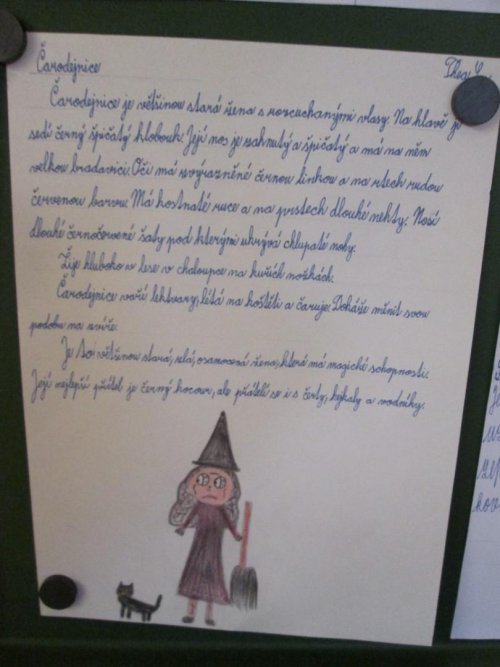 Čarodejnice
Thea
Čarodejnice je většinou stará žena s rozcuchanými vlasy. Na hlavě jí
sedí černý špičatý klobouk. Její nos je zahnutý a špičatý a má na něm
velkou bradavici. Oči má zvýrazněné černou linkou a na rtech rudou
červenou barvu. Má kostnaté ruce a na prstech dlouhé nehty. Nosí
dlouhé černočervené šaty pod kterými ukrývá chlupaté nohy.
Žije hluboko v lese v chaloupce na kuřích nožkách.
Čarodejnice vaří lektvary, létá na koštěti a čaruje. Dokáže měnit svou
podobu na zvíře.
Je to většinou stará, zlá, osamocená žena, která má magické schopnosti.
Její nejlepší přítel je černý kocour, ale přátelí se i s čerty, hejkaly a vodníky.